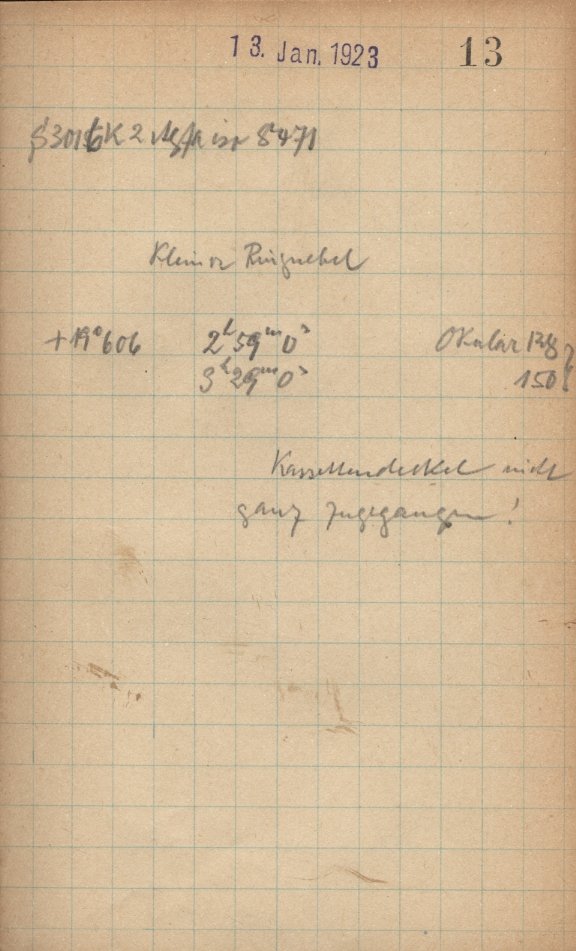 13. Jan. 1923 13
K 2 Agfa iso 8471
Kleiner Ringnebel
+19°606 2ʰ59ᵐ0ˢ Okular
3ʰ29ᵐ0ˢ 150
Kassettendeckel nicht
ganz zugegangen!